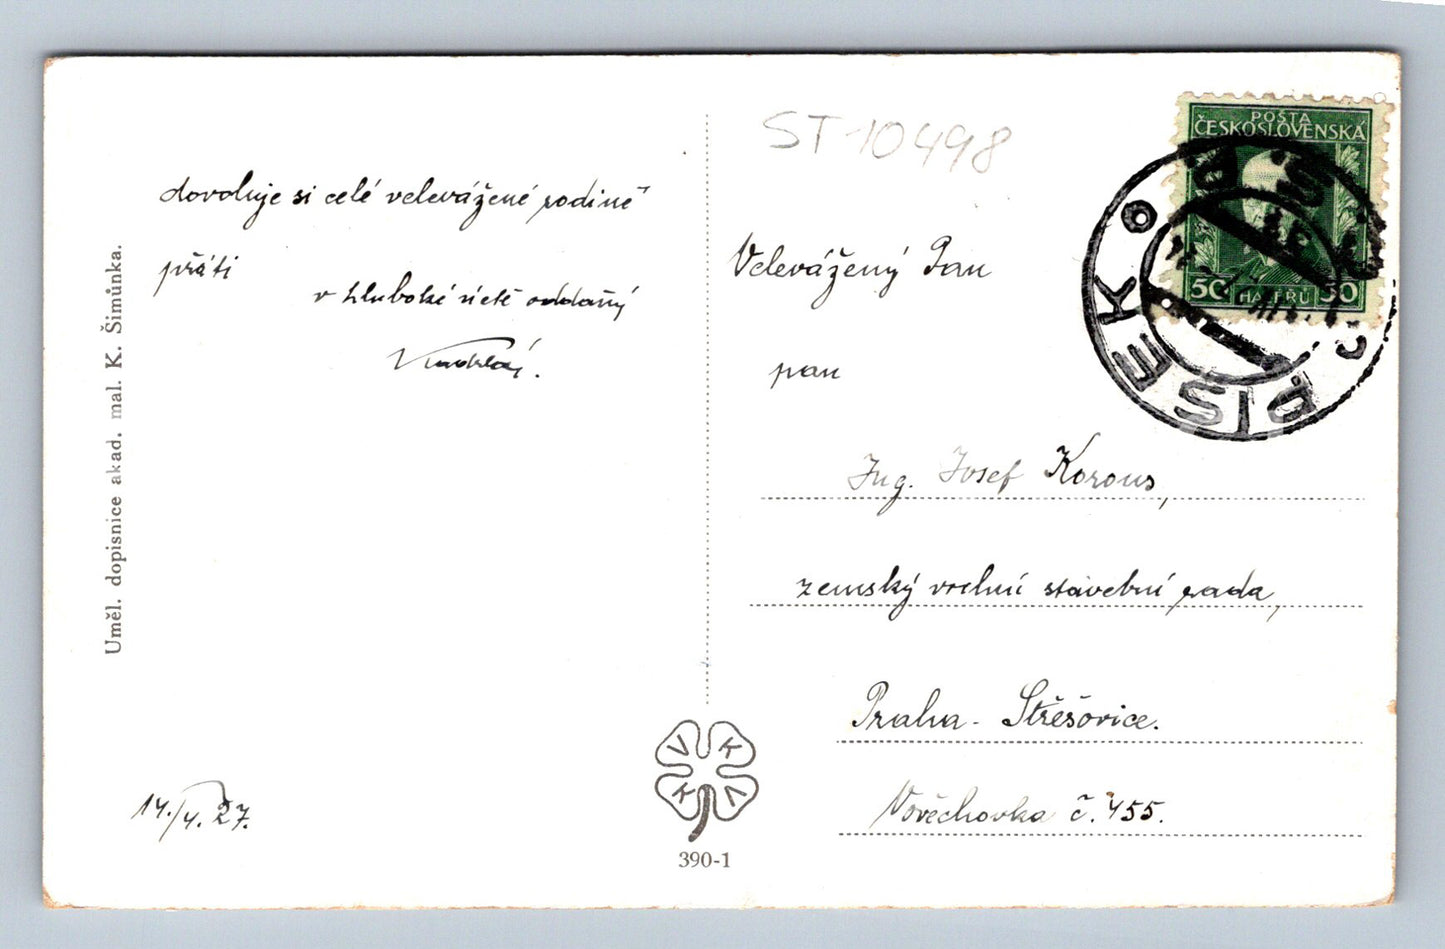 Uměl. dopisnice akad. mal. K. Šimůnka.
dovoluje si celé velevážené rodině
přáti
v hluboké úctě oddaný
14./4. 27.
ST-10498
POŠTA
ČESKOSLOVENSKÁ
50 HALÉŘŮ 50
PÍSEK
Velevážený Pan
pan
Ing. Josef Korous,
zemský vrchní stavební rada,
Praha - Střešovice.
Vořechovka č. 455.
V K
K V
390-1